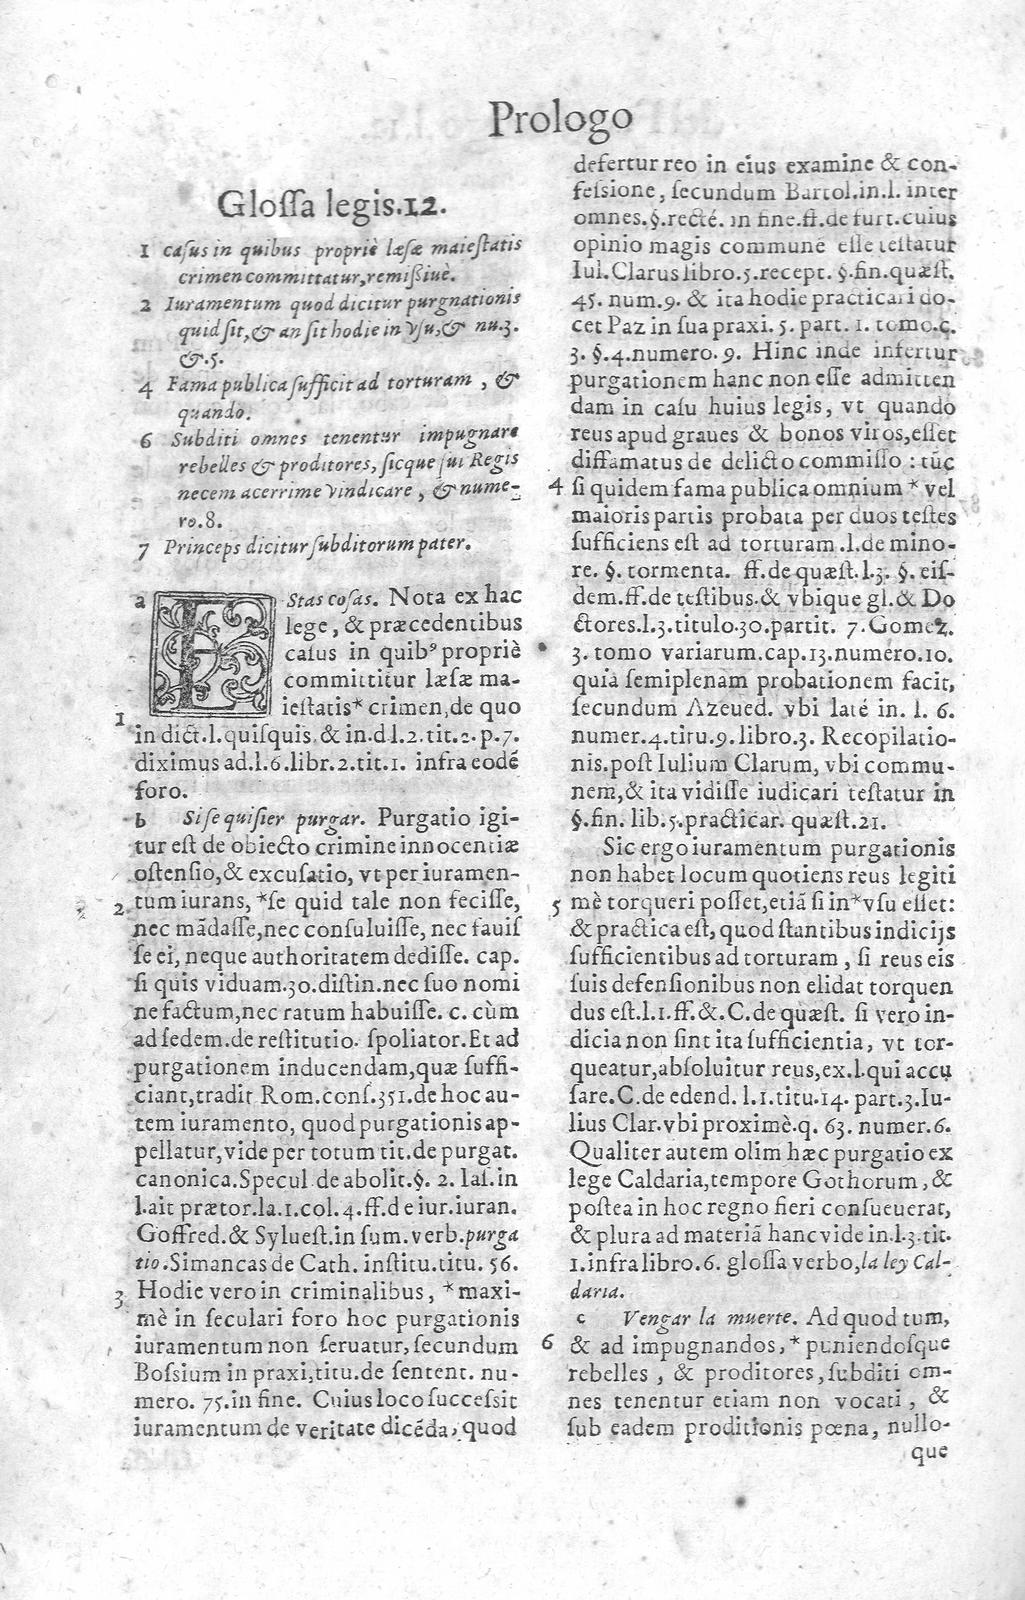 Prologo
Glossa legis.12.
1 casus in quibus propriè læsæ maiestatis
crimen committatur, remissiuè.
2 Iuramentum quod dicitur purgnationis
quid sit, & an sit hodie in vsu, & nu.3.
&.5.
4 Fama publica sufficit ad torturam, &
quando.
6 Subditi omnes tenentur impugnare
rebelles & proditores, sicque sui Regis
necem acerrime vindicare, & nume-
ro.8.
7 Princeps dicitur subditorum pater.
a EStas cosas. Nota ex hac
lege, & præcedentibus
casus in quib9 propriè
committitur læsæ ma-
iestatis* crimen, de quo
1 in dict.l.quisquis.& in.d.l.2.tit.2.p.7.
diximus ad.l.6.libr.2.tit.1. infra eodẽ
foro.
b Si se quisier purgar. Purgatio igi-
tur est de obiecto crimine innocentiæ
ostensio, & excusatio, vt per iuramen-
2 tum iurans, *se quid tale non fecisse,
nec mãdasse, nec consuluisse, nec fauis
se ei, neque authoritatem dedisse. cap.
si quis viduam.30.distin.nec suo nomi
ne factum, nec ratum habuisse. c. cùm
ad sedem.de restitutio. spoliator. Et ad
purgationem inducendam, quæ suffi-
ciant, tradit Rom.cons.351.de hoc au-
tem iuramento, quod purgationis ap-
pellatur, vide per totum tit.de purgat.
canonica.Specul.de abolit.§. 2. Ias.in
l.ait prætor.la.1.col.4.ff.de iur.iuran.
Goffred.& Syluest.in sum.verb.purga
tio.Simancas de Cath. institu.titu. 56.
3 Hodie vero in criminalibus, *maxi-
mè in seculari foro hoc purgationis
iuramentum non seruatur, secundum
Bossium in praxi, titu.de sentent. nu-
mero. 75.in fine. Cuius loco successit
iuramentum de veritate dicẽda, quod
defertur reo in eius examine & con-
fessione, secundum Bartol.in.l. inter
omnes.§.recté. in fine.ff.de furt.cuius
opinio magis communé esse testatur
Iul.Clarus libro.5.recept. §.fin.quæst.
45. num.9. & ita hodie practicari do-
cet Paz in sua praxi. 5. part. 1. tomo.c.
3. §.4.numero. 9. Hinc inde infertur
purgationem hanc non esse admitten
dam in casu huius legis, vt quando
reus apud graues & bonos viros, esset
diffamatus de delicto commisso: tũc
4 si quidem fama publica omnium * vel
maioris partis probata per duos testes
sufficiens est ad torturam.l.de mino-
re. §. tormenta. ff.de quæst.l.3. §. eis-
dem.ff.de testibus.& vbique gl.& Do
ctores.l.3.titulo.30.partit. 7.Gomez.
3. tomo variarum.cap.13.numero.10.
quia semiplenam probationem facit,
secundum Azeued. vbi laté in. l. 6.
numer.4.titu.9.libro.3. Recopilatio-
nis.post Iulium Clarum, vbi commu-
nem, & ita vidisse iudicari testatur in
§.fin. lib.5.practicar. quæst.21.
Sic ergo iuramentum purgationis
non habet locum quotiens reus legiti
5 mè torqueri posset, etiã si in*vsu esset:
& practica est, quod stantibus indicijs
sufficientibus ad torturam, si reus eis
suis defensionibus non elidat torquen
dus est.l.1.ff.&.C.de quæst. si vero in-
dicia non sint ita sufficientia, vt tor-
queatur, absoluitur reus, ex.l.qui accu
sare.C.de edend. l.1.titu.14. part.3.Iu-
lius Clar.vbi proximè.q. 63. numer.6.
Qualiter autem olim hæc purgatio ex
lege Caldaria, tempore Gothorum, &
postea in hoc regno fieri consueuerat,
& plura ad materiã hanc vide in.l.3.tit.
1.infra libro.6. glossa verbo, la ley Cal-
daria.
c Vengar la muerte. Ad quod tum,
6 & ad impugnandos, * puniendosque
rebelles, & proditores, subditi om-
nes tenentur etiam non vocati, &
sub eadem proditionis pœna, nullo-
que